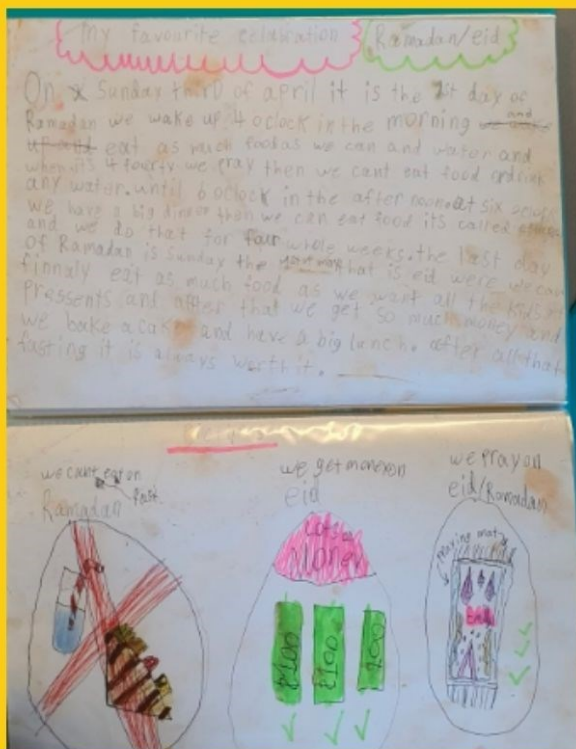 My favourite celabration Ramadan/eid
On Sunday third of april it is the 1st day of
Ramadan we wake up 4 oclock in the morning and
eat as much food as we can and water and
when its 4 fourty we pray then we cant eat food
any water. until 6 oclock in the after noone at six
we have a big then we can eat food its called
and we do that for four whole weeks. the last day
of Ramadan is Sunday the that is eid were we can
finnaly eat as much food as we want all the kids
Pressents and after that we get so much money and
we bake a cake and have a big lunch. after all that
fasting it is always worth it.
we cant eat on
fast
Ramadan
we get money on
eid
Lots of
Money
£100 £100
we pray on
eid/Ramadan